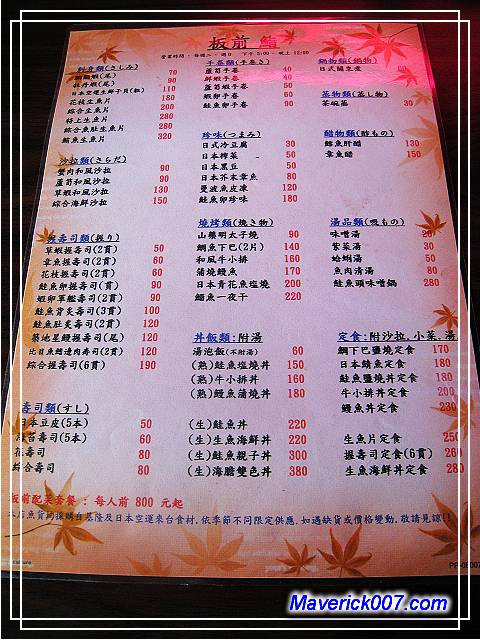 板前 鮨
營業時間：每週二~週日 下午 5:00 - 晚上 12:00
刺身類(さしみ)
胭脂蝦(尾) 70
牡丹蝦(尾) 90
日本空運生鮮干貝(粒) 110
花枝生魚片 180
綜合生魚片 200
特上生魚片 280
綜合魚肚生魚片 280
鮪魚生魚片 320
沙拉類(さらだ)
蟹肉和風沙拉 90
蘆筍和風沙拉 90
草蝦和風沙拉 130
綜合海鮮沙拉 150
握壽司類(握り)
草蝦握壽司(2貫) 50
章魚握壽司(2貫) 60
花枝握壽司(2貫) 60
鮭魚卵握壽司(貫) 90
蝦卵軍艦壽司(2貫) 90
鮭魚背炙壽司(3貫) 100
鮭魚肚炙壽司(2貫) 120
築地星鰻握壽司(尾) 120
比目魚鰭邊肉壽司(2貫) 120
綜合握壽司(6貫) 190
壽司類(すし)
日本豆皮(5本) 50
海苔壽司(5本) 60
花壽司 80
綜合壽司 80
手卷類(手巻き)
蘆筍手卷 40
鮮蝦手卷 40
蘆筍蝦手卷 50
蝦卵手卷 60
鮭魚卵手卷 90
珍味(つまみ)
日式冷豆腐 30
日本榨菜 50
日本黑豆 50
日本芥末章魚 80
曼波魚皮凍 120
鮭魚卵珍味 180
燒烤類(燒き物)
山藥明太子燒 90
鯛魚下巴(2片) 140
和風牛小排 160
蒲燒鰻魚 170
日本青花魚鹽燒 200
鯔魚一夜干 220
丼飯類:附湯
湯泡飯(不附湯) 60
(熟)鮭魚鹽燒丼 150
(熟)牛小排丼 160
(熟)鰻魚蒲燒丼 180
(生)鮭魚丼 220
(生)生魚海鮮丼 220
(生)鮭魚親子丼 300
(生)海膽雙色丼 380
鍋物類(鍋物)
日式關東煮 60
蒸物類(蒸し物)
茶碗蒸 30
醋物類(酢もの)
鱈魚肝醋 130
章魚醋 150
湯品類(吸もの)
味噌湯 20
紫菜湯 30
蛤蜊湯 50
魚肉清湯 80
鮭魚頭味噌鍋 280
定食:附沙拉,小菜,湯
鯛下巴鹽燒定食 170
日本鯖魚定食 180
鮭魚鹽燒丼定食 180
牛小排丼定食 200
鰻魚丼定食 230
生魚片定食 250
握壽司定食(6貫) 260
生魚海鮮丼定食 280
板前配菜套餐：每人前 800 元起
本店魚貨均採購自基隆及日本空運來台食材,依季節不同限定供應.如遇缺貨或價格變動,敬請見諒!!
Maverick007.com